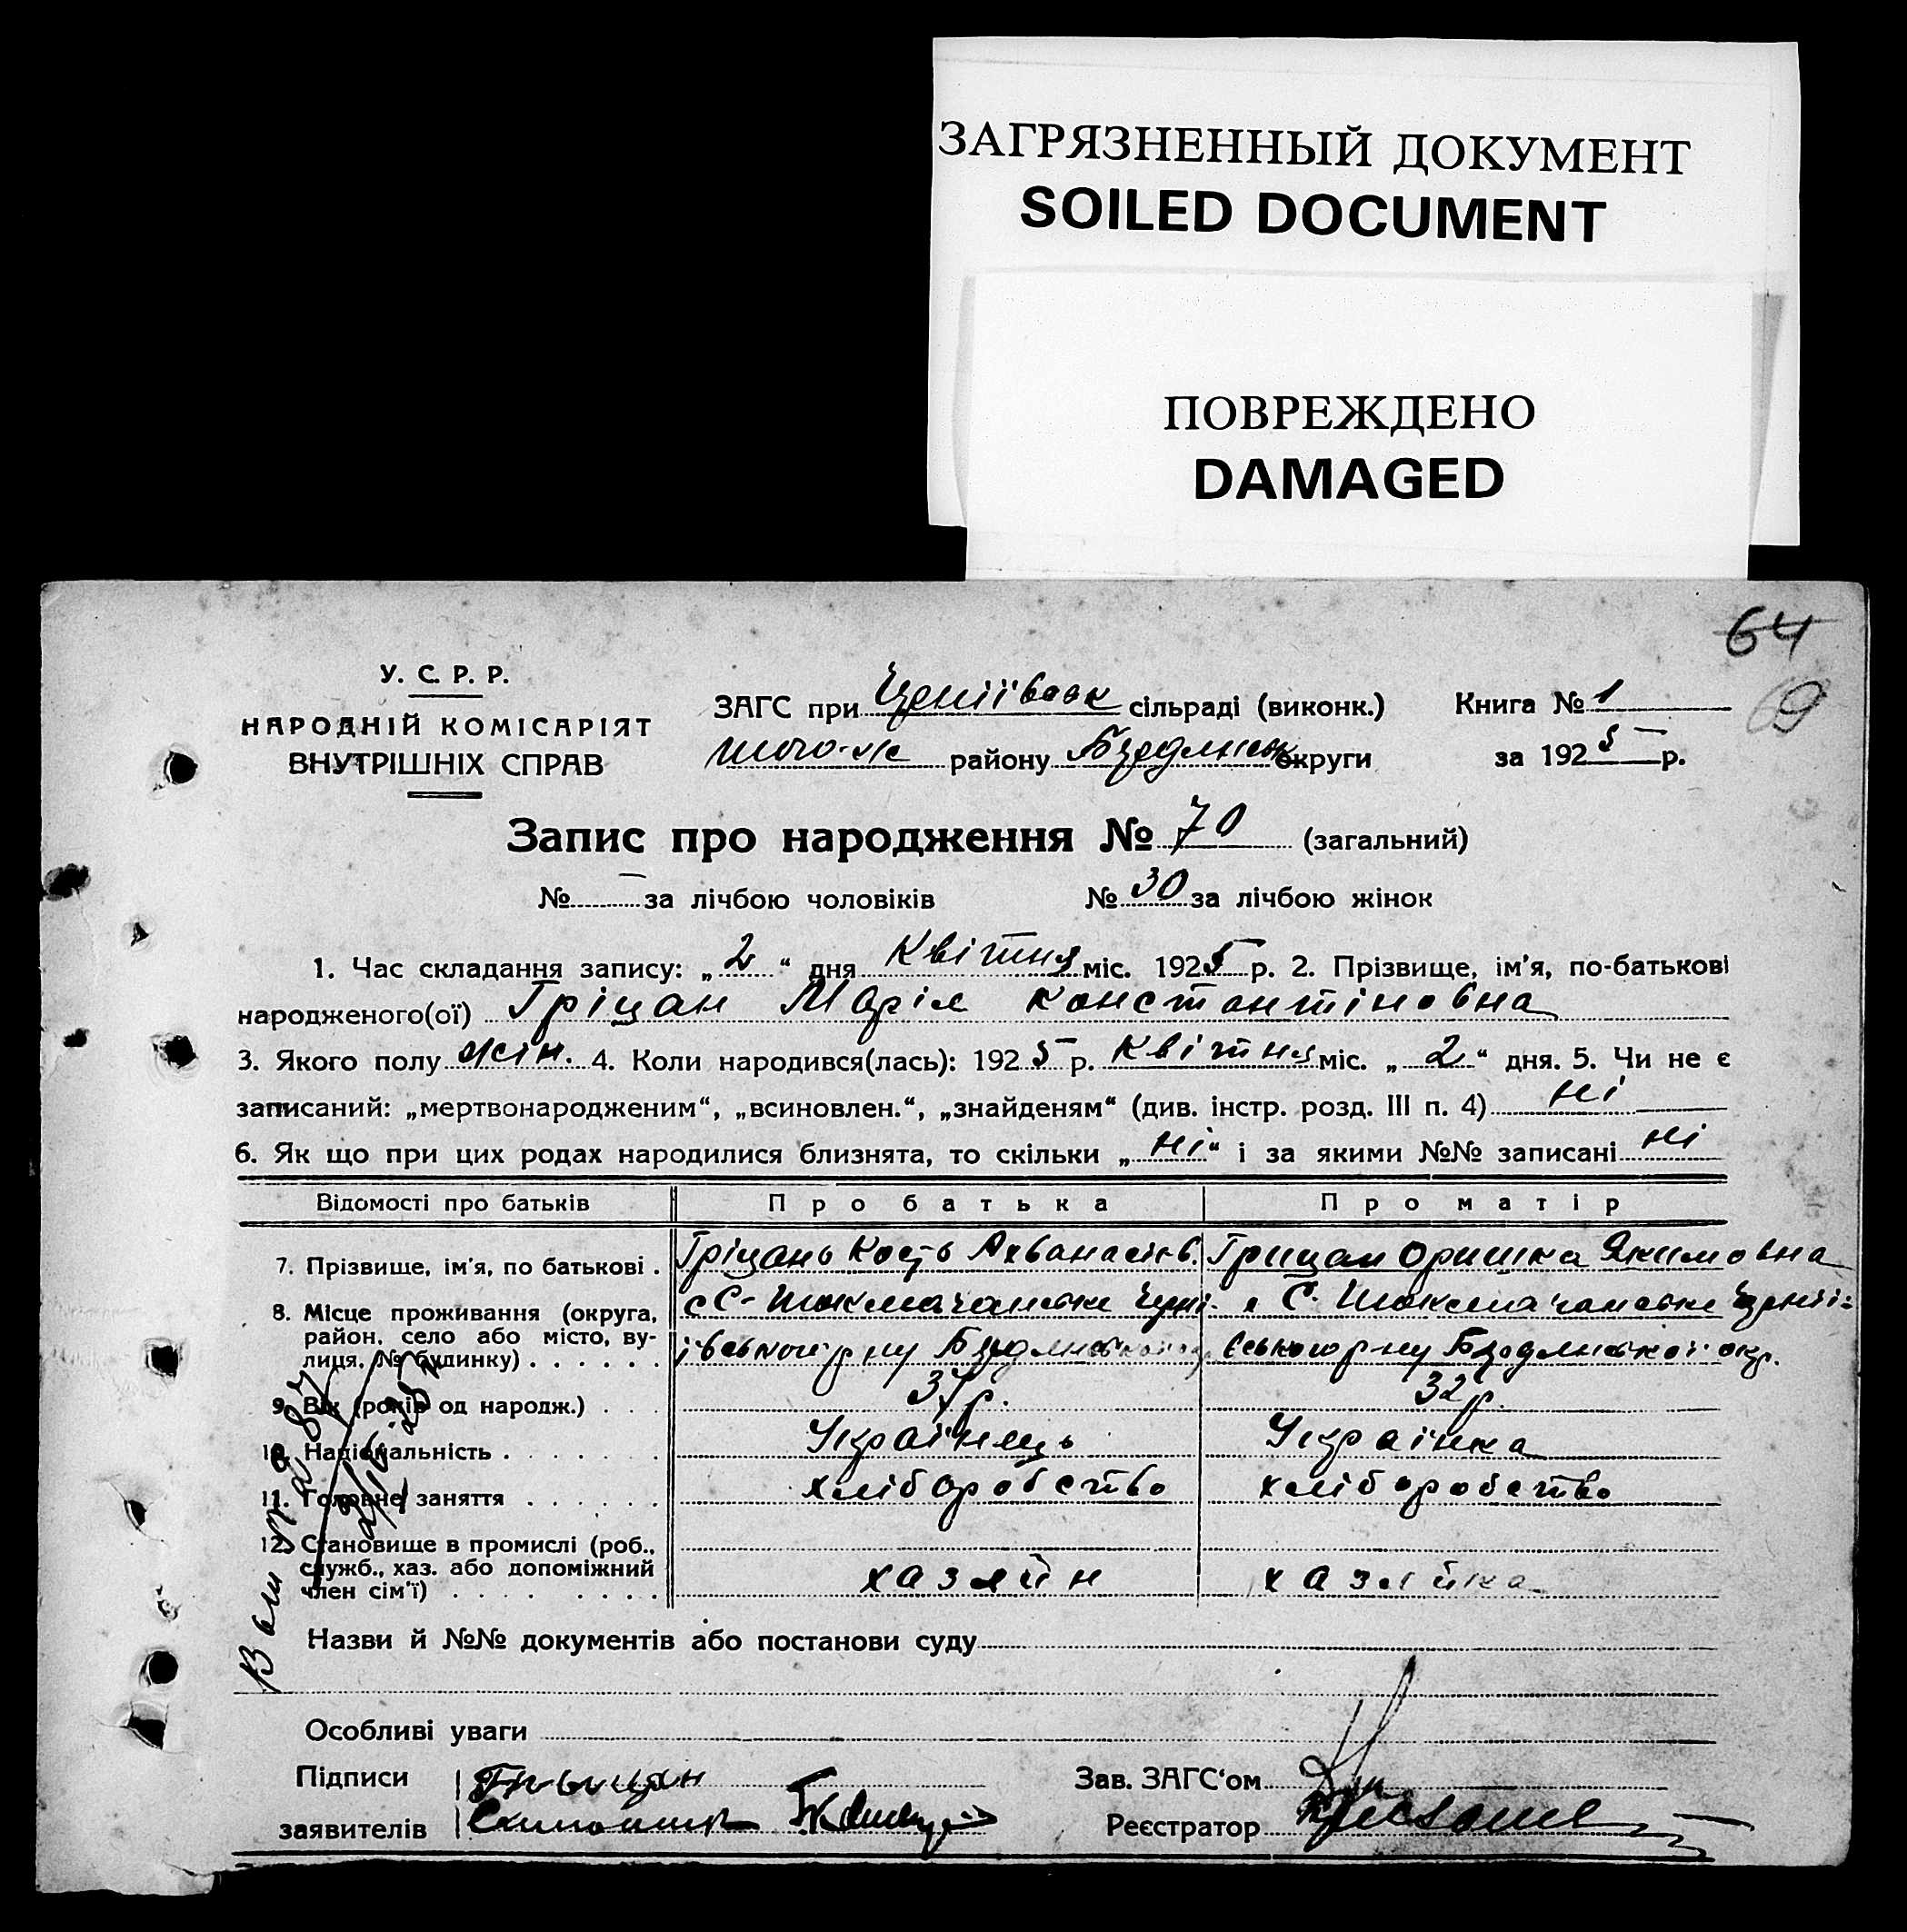 ЗАГРЯЗНЕННЫЙ ДОКУМЕНТ
SOILED DOCUMENT
ПОВРЕЖДЕНО
DAMAGED
64
69
У. С. Р. Р.
НАРОДНІЙ КОМІСАРІЯТ
ВНУТРІШНІХ СПРАВ
ЗАГС при сільраді (виконк.) Книга № 1
району округи за 1925 р.
Запис про народження № 70 (загальний)
№ — за лічбою чоловіків № 30 за лічбою жінок
1. Час складання запису: „2“ дня Квітня міс. 1925 р. 2. Прізвище, ім'я, по-батькові
народженого(ої) Гріцан Марія Константіновна
3. Якого полу жін. 4. Коли народився(лась): 1925 р. Квітня міс. „2“ дня. 5. Чи не є
записаний: „мертвонародженим“, „всиновлен.“, „знайденям“ (див. інстр. розд. III п. 4) ні
6. Як що при цих родах народилися близнята, то скільки „ні“ і за якими №№ записані ні
Відомості про батьків Про батька Про матір
7. Прізвище, ім'я, по батькові . Гріцань Кость Ахванасієв. Грицан Оришка Якимовна
8. Місце проживання (округа,
район, село або місто, ву-
лиця, № будинку) . . . . . .
9. Вік (років од народж.) . . . 37р. 32р.
10. Національність . . . . . . . Українець Українка
11. Головне заняття . . . . . . хліборобство хліборобство
12. Становище в промислі (роб.,
служб., хаз. або допоміжний
член сім'ї) . . . . . . . . хазяйн хазяйка
Назви й №№ документів або постанови суду
Особливі уваги
Підписи Зав. ЗАГС'ом
заявителів Реєстратор